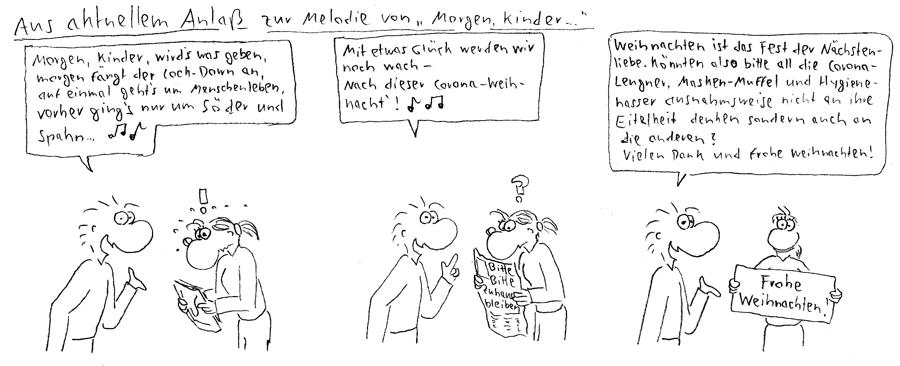 Aus aktuellem Anlaß zur Melodie von „Morgen, Kinder..."
Morgen, Kinder, wird's was geben,
morgen fängt der Loch-Down an,
auf einmal geht's um Menschenleben,
vorher ging's nur um Söder und
Spahn...
!
Mit etwas Glück werden wir
noch wach –
nach dieser Corona-Weih-
nacht'!
?
Bitte
Bitte
zuhause
bleiben
Weihnachten ist das Fest der Nächsten-
liebe. Könnten also bitte all die Corona-
Leugner, Masken-Muffel und Hygiene-
hasser ausnahmsweise nicht an ihre
Eitelkeit denken sondern auch an
die anderen?
Vielen Dank und frohe Weihnachten!
Frohe
Weihnachten!